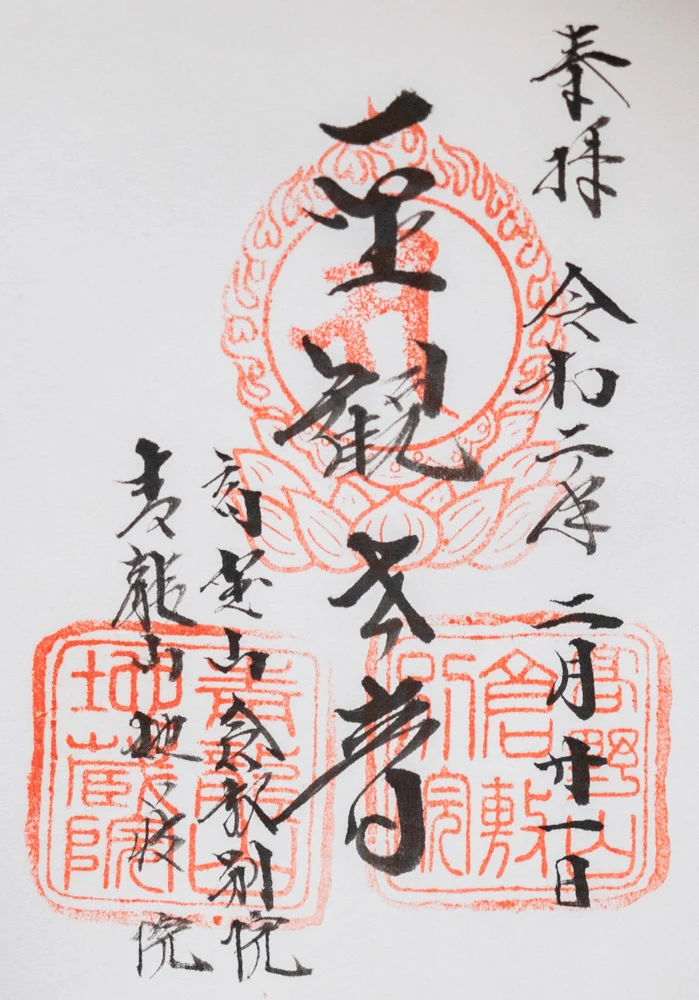 奉拝 令和二年 二月廿一日
聖觀世音
高野山倉敷別院
青龍山地蔵院
高野山
倉敷
別院
青龍山
地蔵院